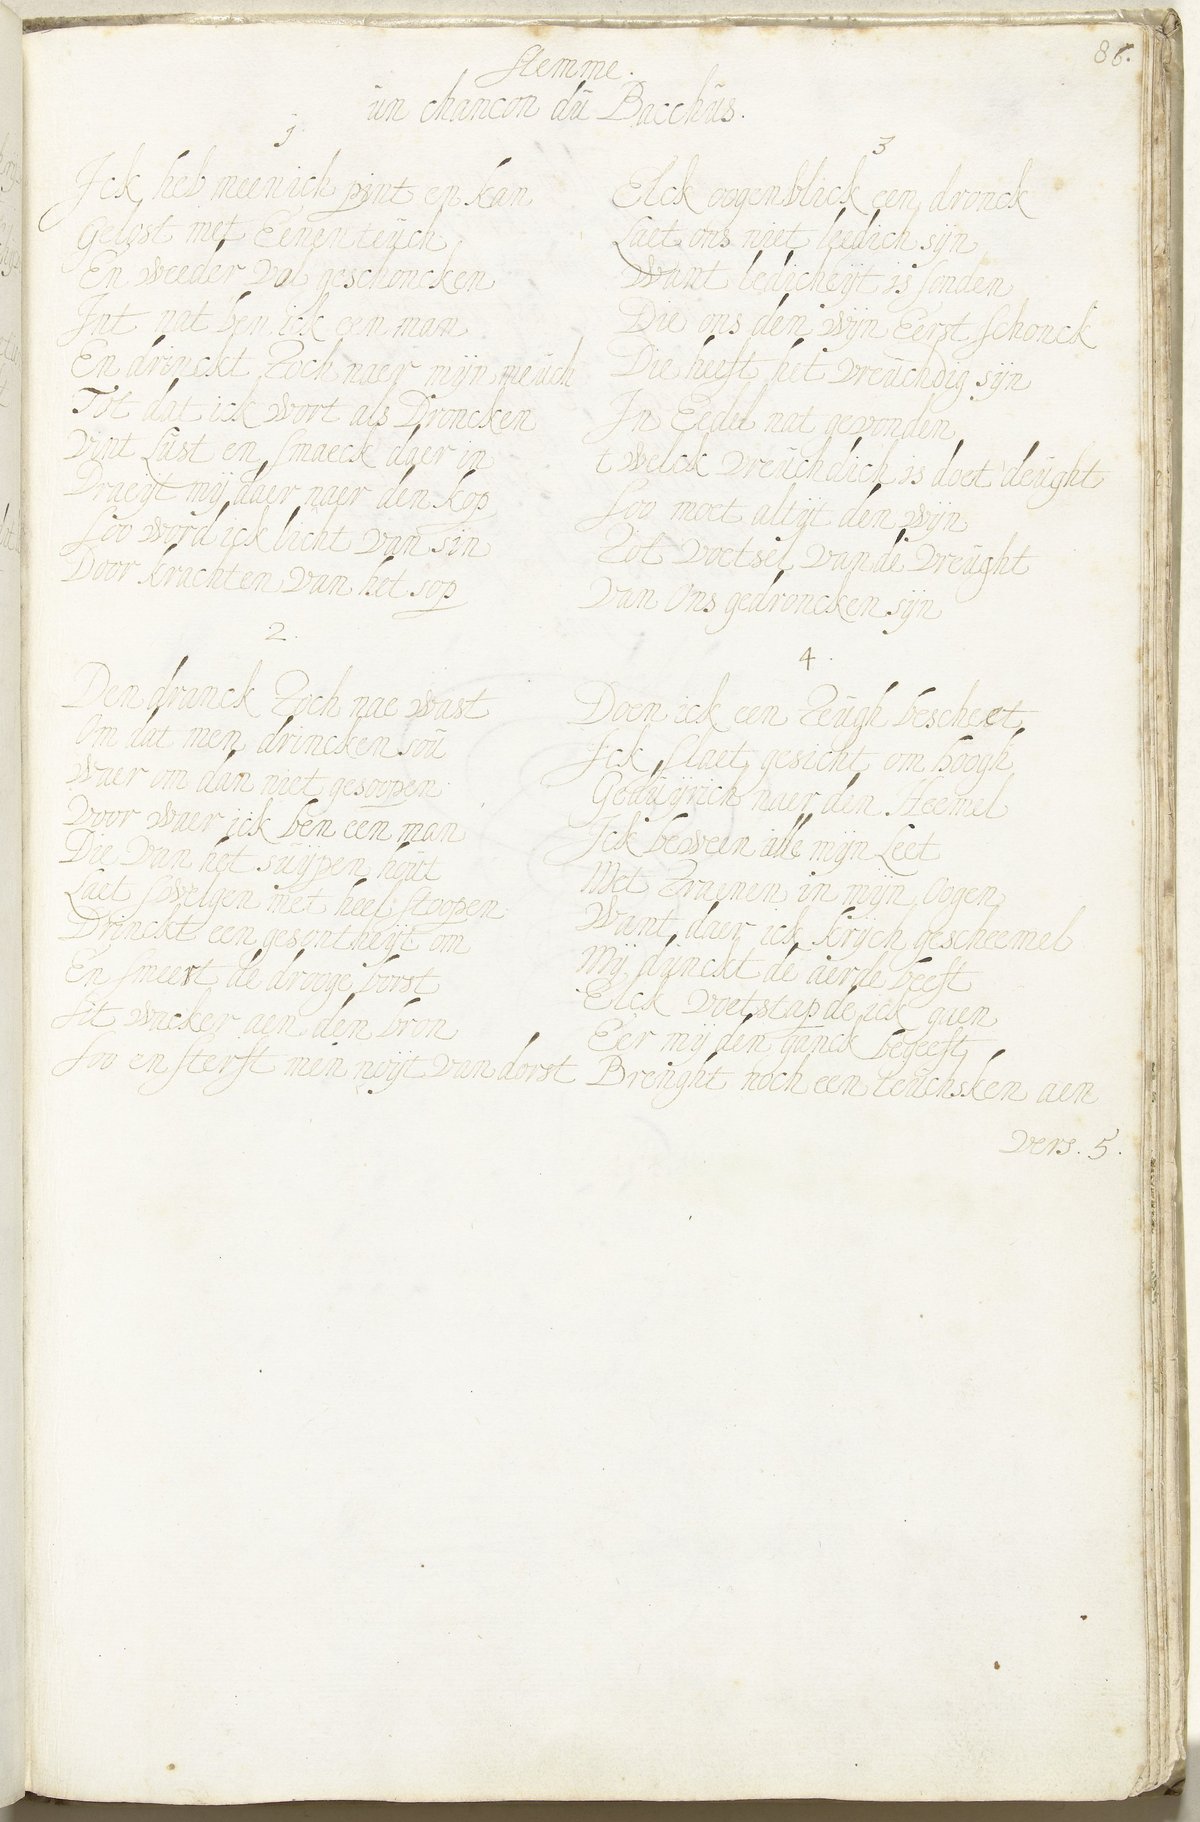 86.
Stemme.
ün chancon dü Bacchüs.
1
Ick heb meenich pint en kan
Gelost met Eenen teüch
En weeder vol geschoncken
Int nat ben ick een man
En drinckt Toch naer mijn meüch
Tot dat ick wort als Droncken
Vint Lüst en smaeck daer in
Draeijt mij daer naer den kop
Soo word ick licht van sin
Door krachten van het sop
2.
Den dranck Toch nae wast
Om dat men drincken soü
Waer om dan niet gesoopen
Voor waer ick ben een man
Die van het süijpen hout
Laet swelgen met heel stoopen
Drinckt een gesontheijt om
En smeert de drooge borst
Sit wacker aen den bron
Soo en sterft men noijt van dorst
3
Elck oogenblick een dronck
Laet ons niet leedich sijn
Want ledicheijt is sonden
Die ons den wijn Eerst schonck
Die heeft het vreüchdig sijn
In Eedel nat gevonden
t welck vreüchdich is doet deüght
Soo moet altijt den wijn
Tot voetsel van de vreüght
Van Ons gedroncken sijn
4.
Doen ick een Teügh bescheet
Ick slaet gesicht om hoogh
Gedüijrich naer den Heemel
Ick beween alle mijn Leet
Met Traenen in mijn Oogen
Want daer ick krijch gescheemel
Mij dünckt de aerde beeft
Elck voetstap de ick gaen
Eer mij den ganck begeeft
Breüght noch een teüchsken aen
Vers. 5.